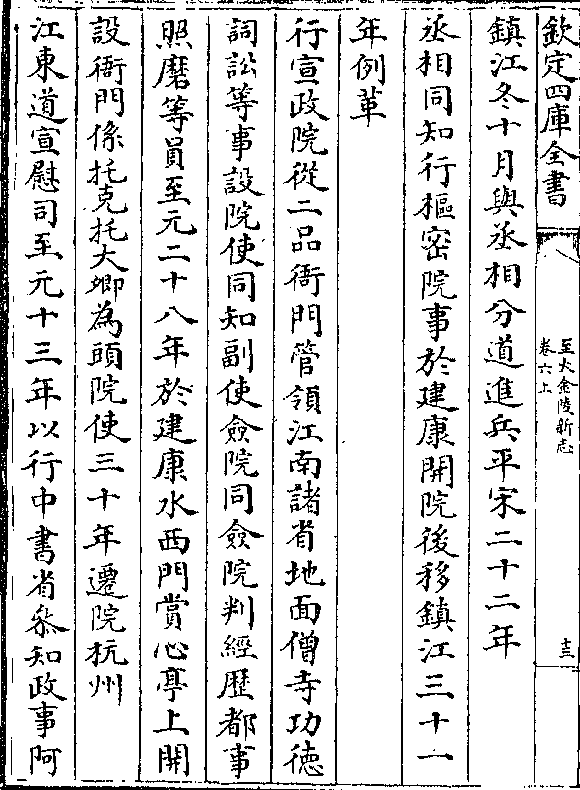 欽定四庫全書
至大金陵新志
卷六上
十三
鎮江冬十月與丞相分道進兵平宋二十二年
丞相同知行樞密院事於建康開院後移鎮江三十一
年例革
行宣政院從二品衙門管領江南諸省地面僧寺功徳
詞訟等事設院使同知副使僉院同僉院判經歴都事
照磨等員至元二十八年於建康水西門賞心亭上開
設衙門係托克托大卿為頭院使三十年遷院杭州
江東道宣慰司至元十三年以行中書省叅知政事阿